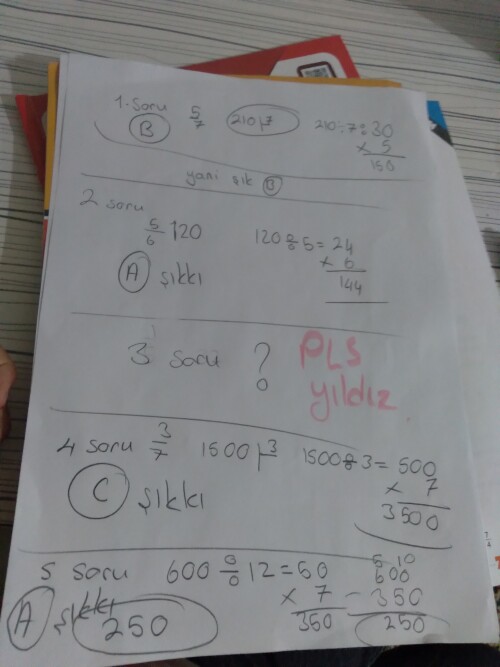 1. Soru 5/7 210 7 210÷7=30
B × 5
150
yani şık B
2 soru
5/6 120 120÷5=24
× 6
A şıkkı 144
3 soru ? PLS
yıldız
4 soru 3/7 1500 3 1500÷3=500
× 7
C şıkkı 3500
5 soru 600÷12=50 5 10
600
× 7 - 350
A şıkkı 250 350 250